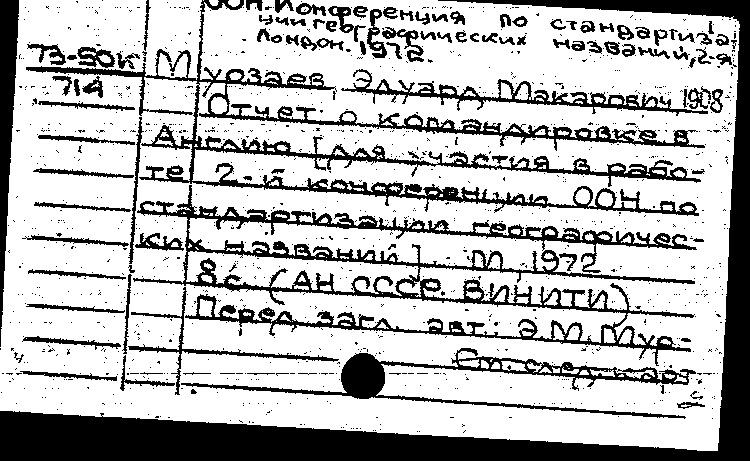 ООН. Конференция по стандартиза-
ции географических названий, 2-я.
Лондон. 1972.
73-50к
714
Мурзаев, Эдуард Макарович, 1908
Отчет о командировке в
Англию [для участия в рабо-
те 2-й конференции ООН по
стандартизации географичес-
ких названий]. М., 1972.
8 с. (АН СССР. ВИНИТИ).
Перед загл. авт.: Э.М. Мур-
См. след. карт.